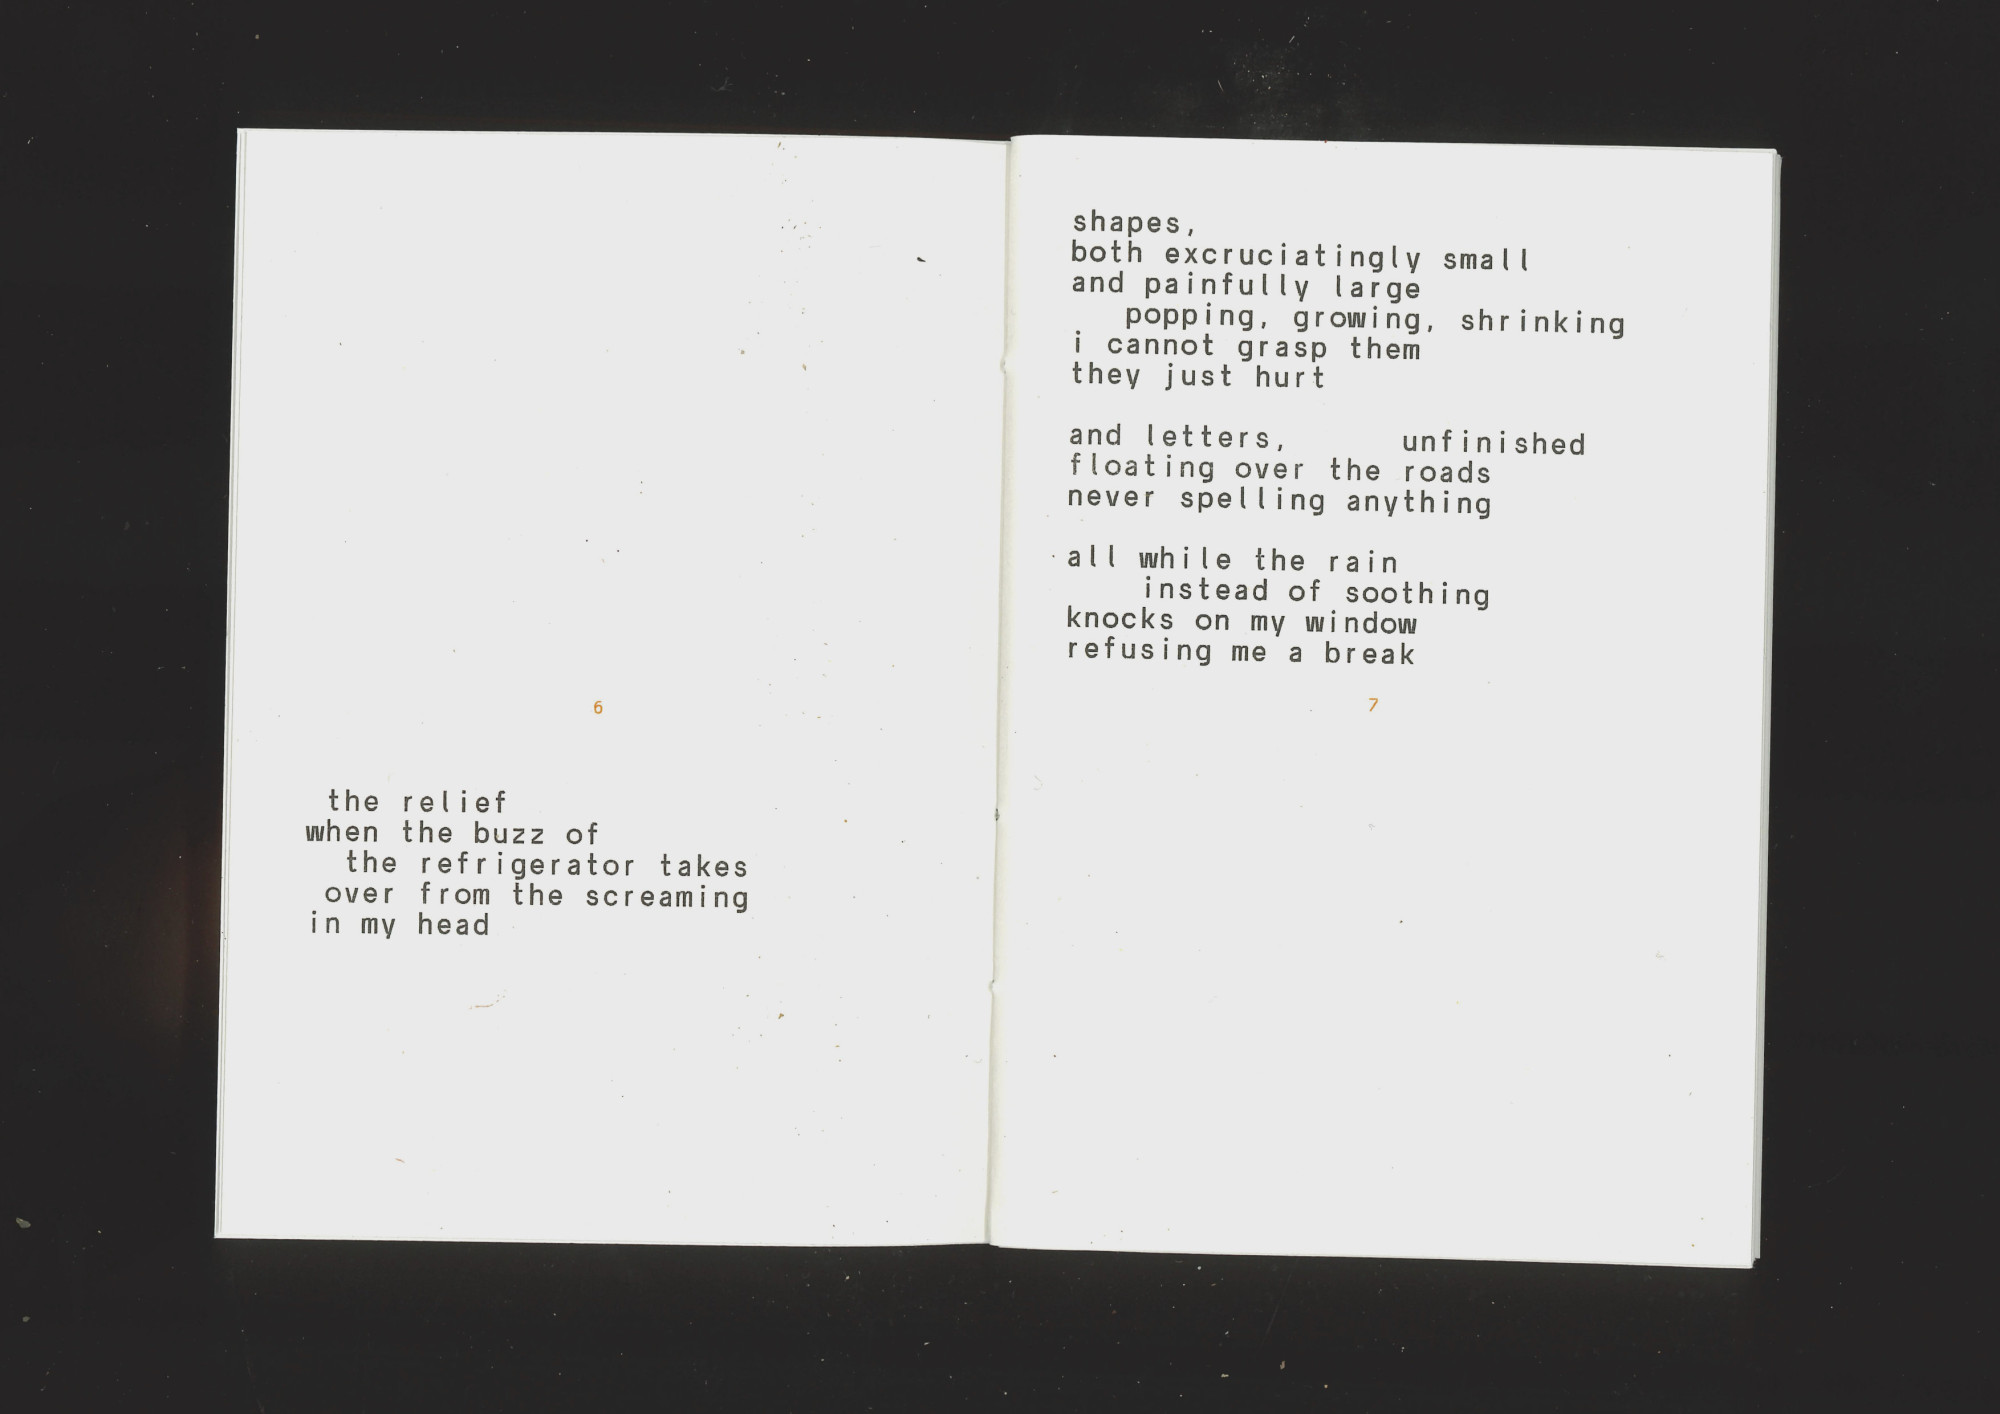 6
the relief
when the buzz of
the refrigerator takes
over from the screaming
in my head
shapes,
both excruciatingly small
and painfully large
popping, growing, shrinking
i cannot grasp them
they just hurt
and letters, unfinished
floating over the roads
never spelling anything
all while the rain
instead of soothing
knocks on my window
refusing me a break
7